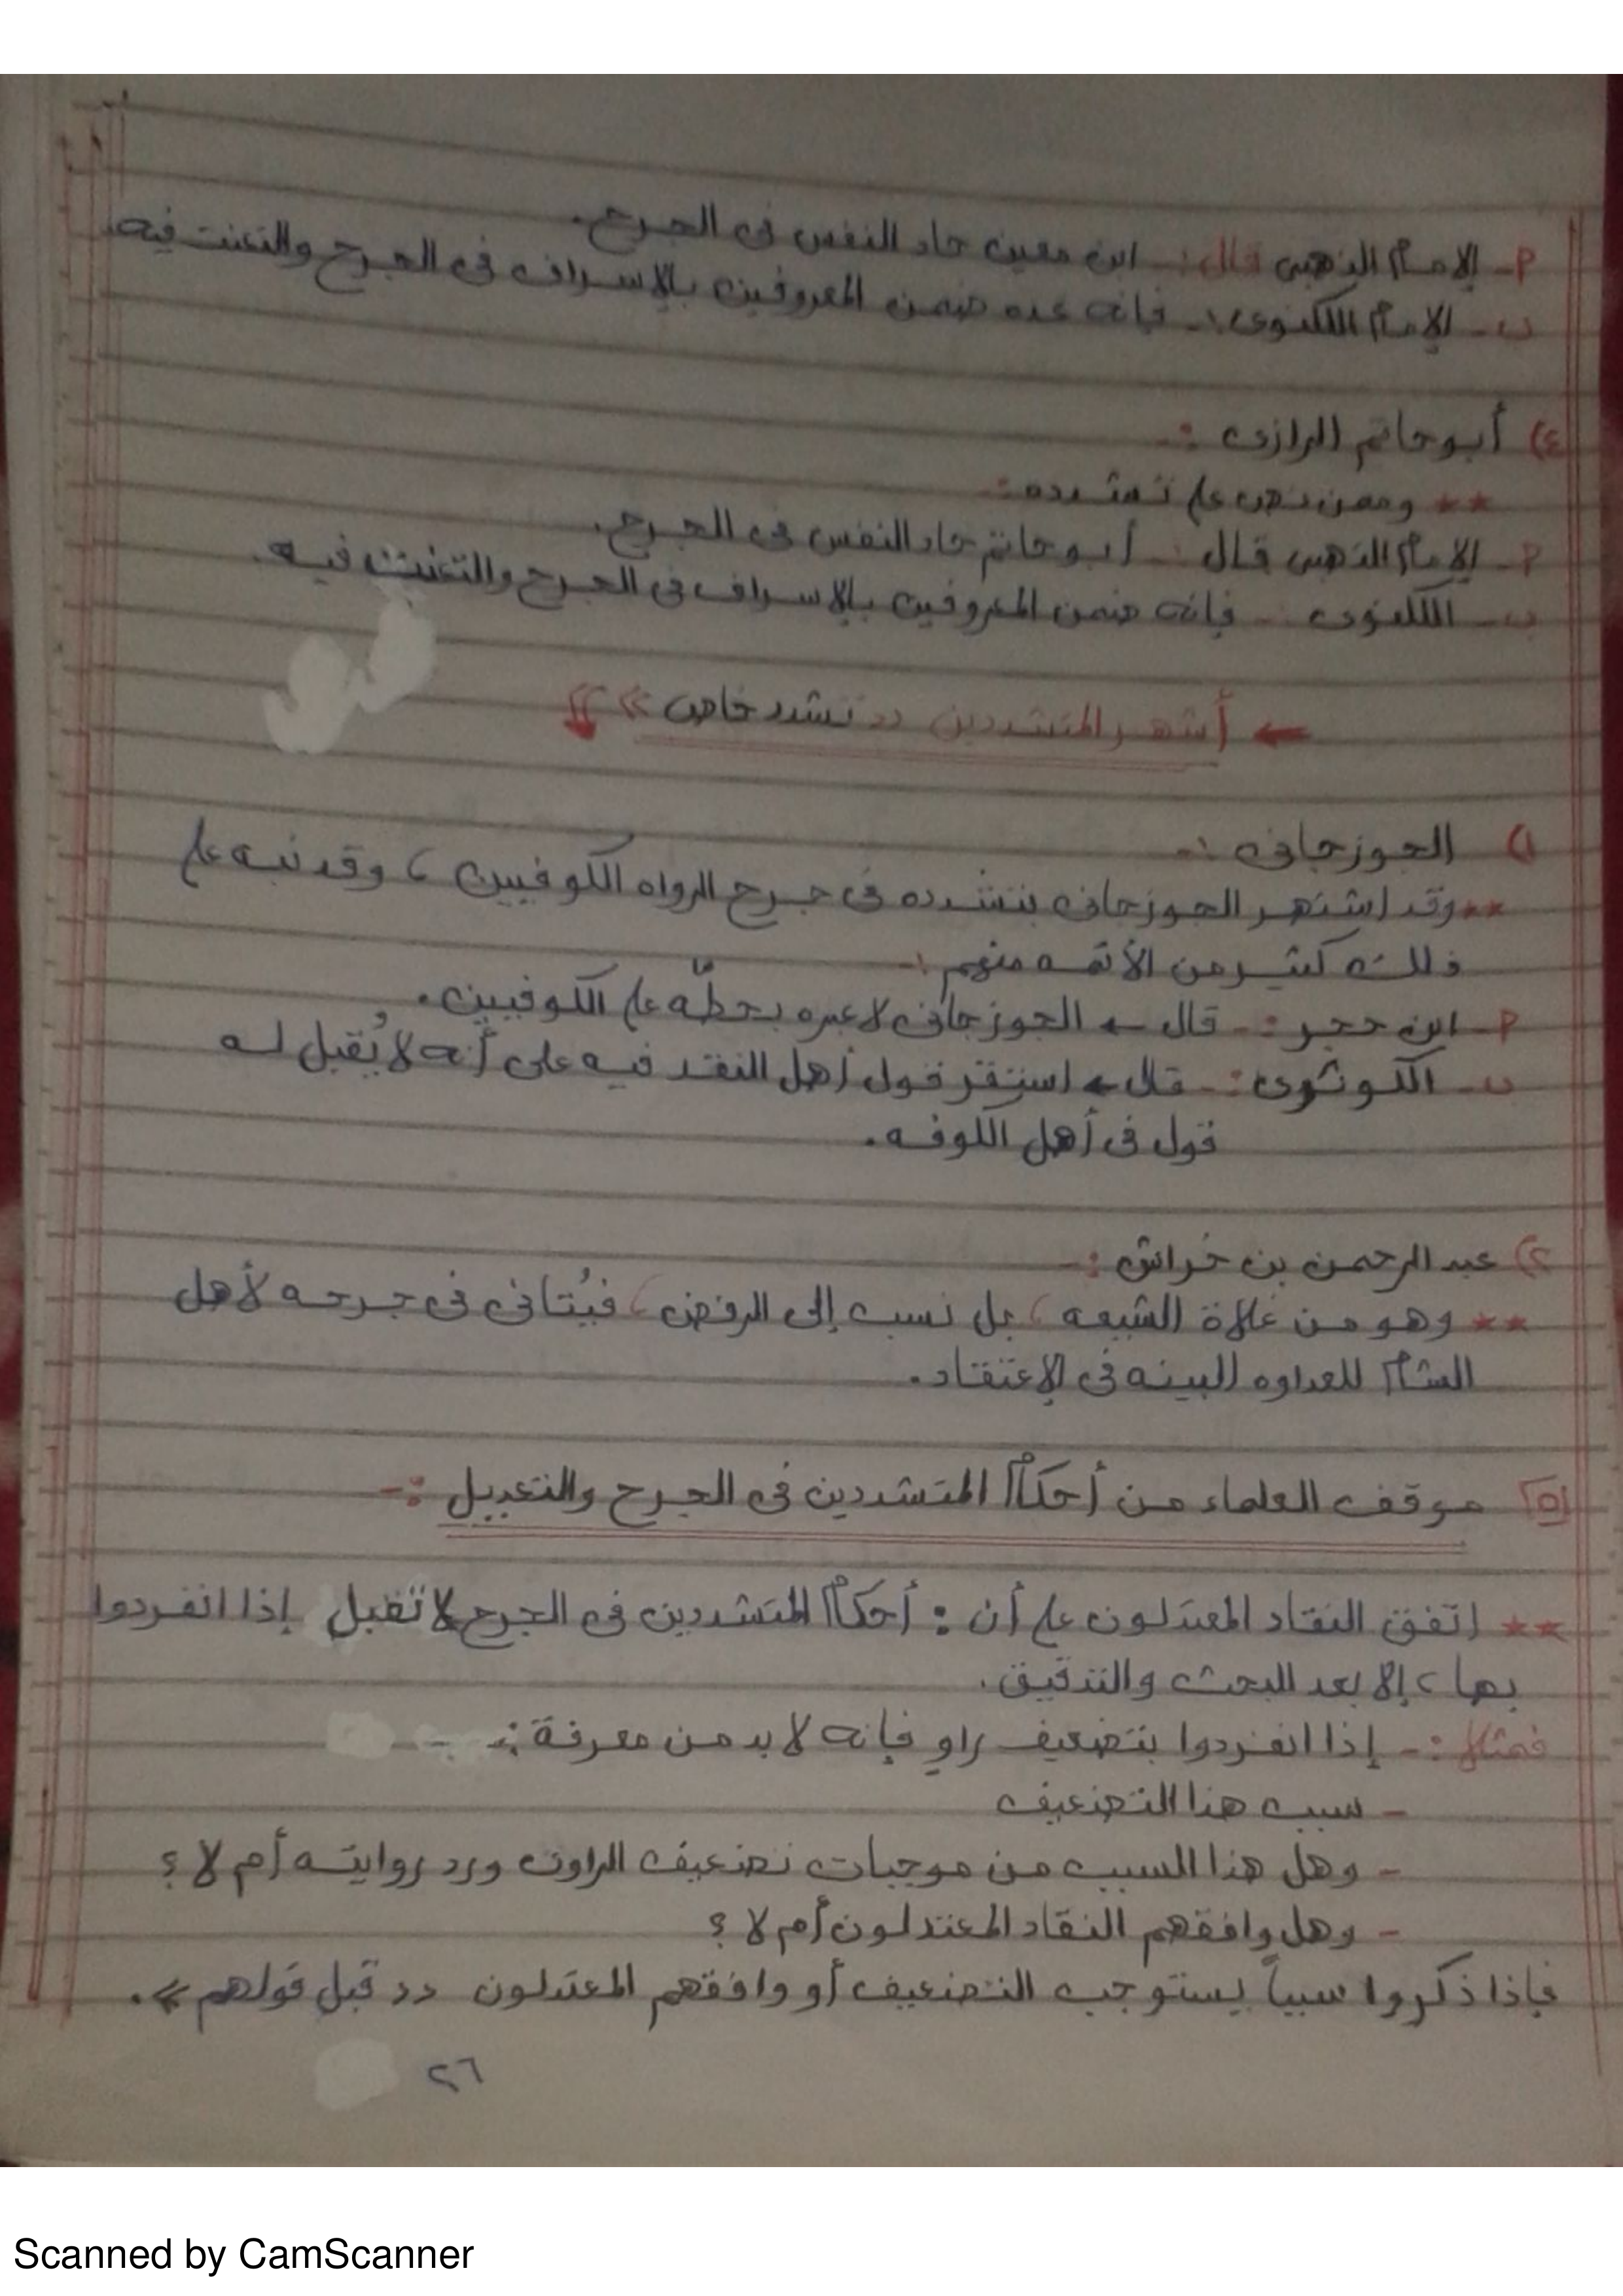 أ- الإمام الذهبى قال:- ابن معين حاد النفس فى الجرح.
ب- الإمام اللكنوى:- فإنه عده ضمن المعروفين بالإسراف فى الجرح والتعنت فيه.
٤) أبو حاتم الرازى :-
** وممن نص على تشدده :-
أ- الإمام الذهبى قال :- أبو حاتم حاد النفس فى الجرح.
ب- اللكنوى :- فإنه ضمن المعروفين بالإسراف فى الجرح والتعنت فيه.
← أشهر المتشددين " تشدد خاص "
١) الجوزجانى :-
** وقد اشتهر الجوزجانى بتشدده فى جرح الرواه الكوفيين، وقد نبه على
ذلك كثير من الأئمه منهم :-
أ- ابن حجر :- قال ← الجوزجانى لا عبره بحطّه على الكوفيين.
ب- الكوثرى :- قال ← استقر قول أهل النقد فيه على أنه لا يُقبل له
قول فى أهل الكوفه.
٢) عبد الرحمن بن خراش :-
** وهو من غلاة الشيعه، بل نسب إلى الرفض، فيُتانى فى جرحه لأهل
الشام للعداوه البينه فى الإعتقاد.
٥ موقف العلماء من أحكام المتشددين فى الجرح والتعديل :-
** اتفق النقاد المعتدلون على أن : أحكام المتشددين فى الجرح لا تقبل إذا انفردوا
بها، إلا بعد البحث والتدقيق.
فمثلا :- إذا انفردوا بتضعيف راوٍ فإنه لا بد من معرفة :-
- سبب هذا التضعيف
- وهل هذا السبب من موجبات تضعيف الراوى ورد روايته أم لا ؟
- وهل وافقهم النقاد المعتدلون أم لا ؟
فإذا ذكروا سبباً يستوجب التضعيف أو وافقهم المعتدلون " قبل قولهم ".
٢٦
Scanned by CamScanner